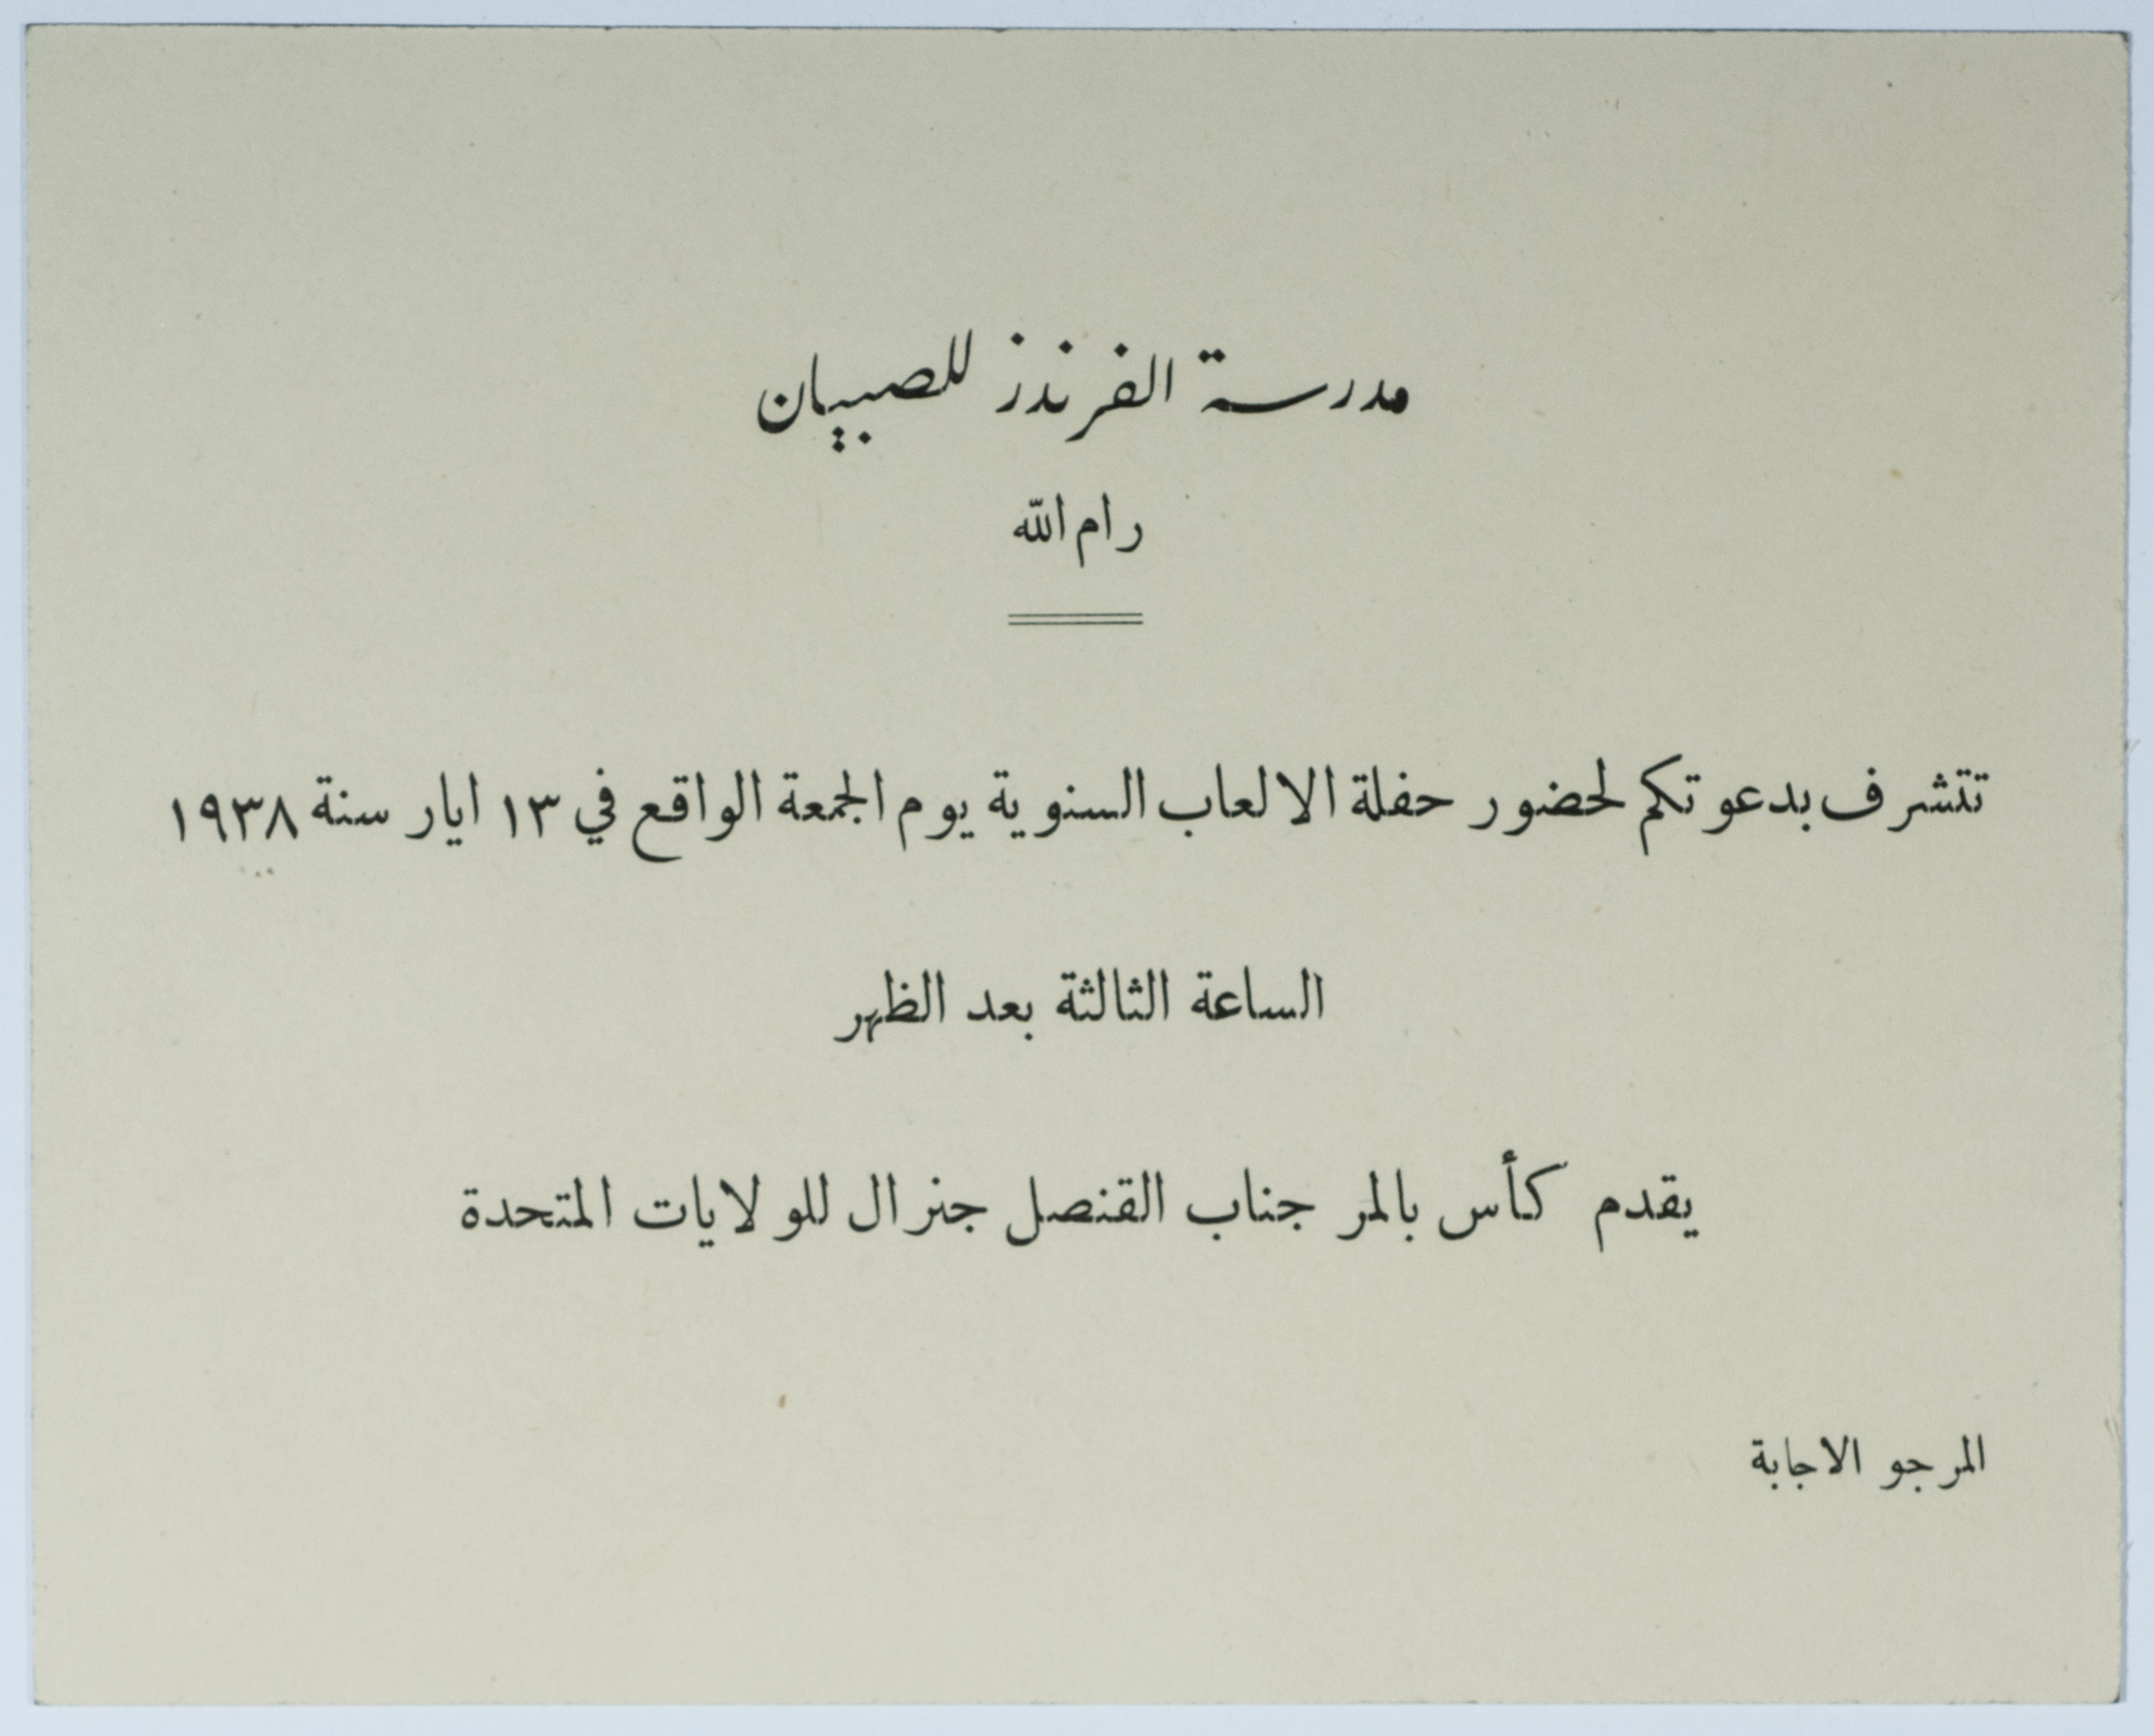 مدرسة الفرندز للصبيان
رام الله
تتشرف بدعوتكم لحضور حفلة الالعاب السنوية يوم الجمعة الواقع في ١٣ ايار سنة ١٩٣٨
الساعة الثالثة بعد الظهر
يقدم كأس بالمر جناب القنصل جنرال للولايات المتحدة
المرجو الاجابة